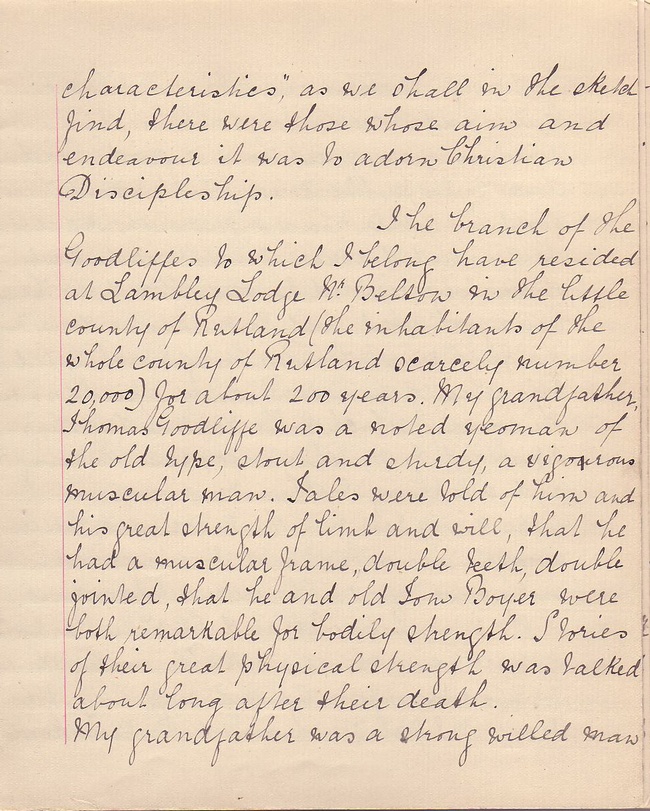 characteristics", as we shall in the sketch
find, there were those whose aim and
endeavour it was to adorn Christian
Discipleship.
The branch of the
Goodliffes to which I belong have resided
at Lambley Lodge Nr. Belton in the little
county of Rutland (the inhabitants of the
whole county of Rutland scarcely number
20,000) for about 200 years. My grandfather,
Thomas Goodliffe was a noted yeoman of
the old type, stout and sturdy, a vigourous
muscular man. Tales were told of him and
his great strength of limb and will, that he
had a muscular frame, double teeth, double
jointed, that he and old Tom Boyer were
both remarkable for bodily strength. Stories
of their great physical strength was talked
about long after their death.
My grandfather was a strong willed man